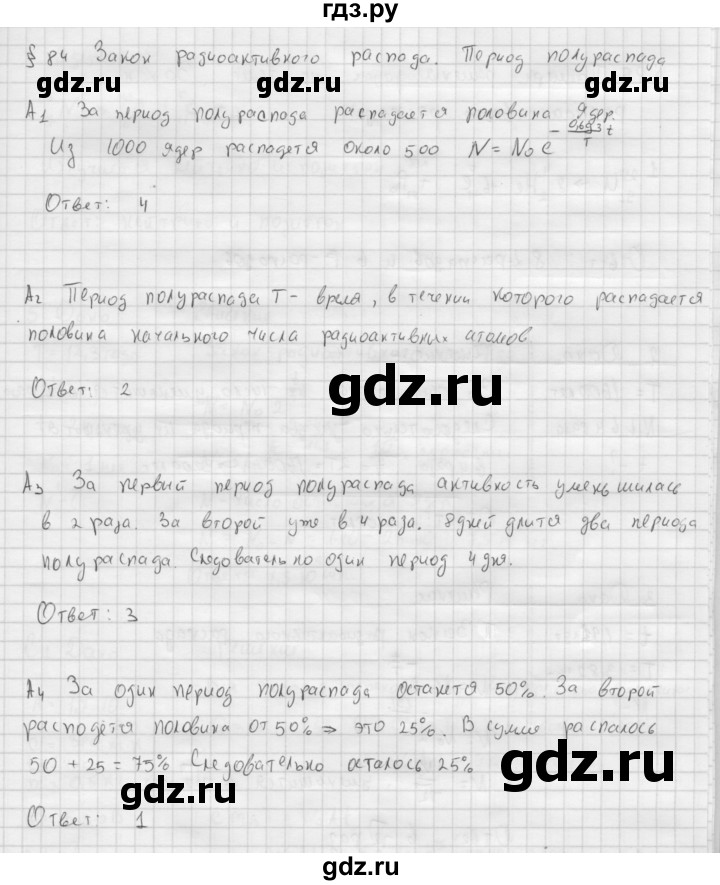 гдз.ру
§ 84 Закон радиоактивного распада. Период полураспада
gdz.ru gdz.ru gdz.ru
A1 За период полураспада распадается половина ядер.
Из 1000 ядер распадется около 500 N = N₀ e^(-0,693/T t)
Ответ: 4
A2 Период полураспада T - время, в течении которого распадается
половина начального числа радиоактивних атомов
Ответ: 2
gdz.ru
A3 За первий период полураспада активность уменьшилась
в 2 раза. За второй уже в 4 раза. 8 дней длится два периода
полураспада. Следовательно один период 4 дня.
Ответ: 3
A4 За один период полураспада останется 50%. За второй
распадётя половина от 50% ⇒ это 25%. В сумме распалось
50 + 25 = 75% Следовательно осталось 25%
gdz.ru gdz.ru
Ответ: 1
gdz.ru